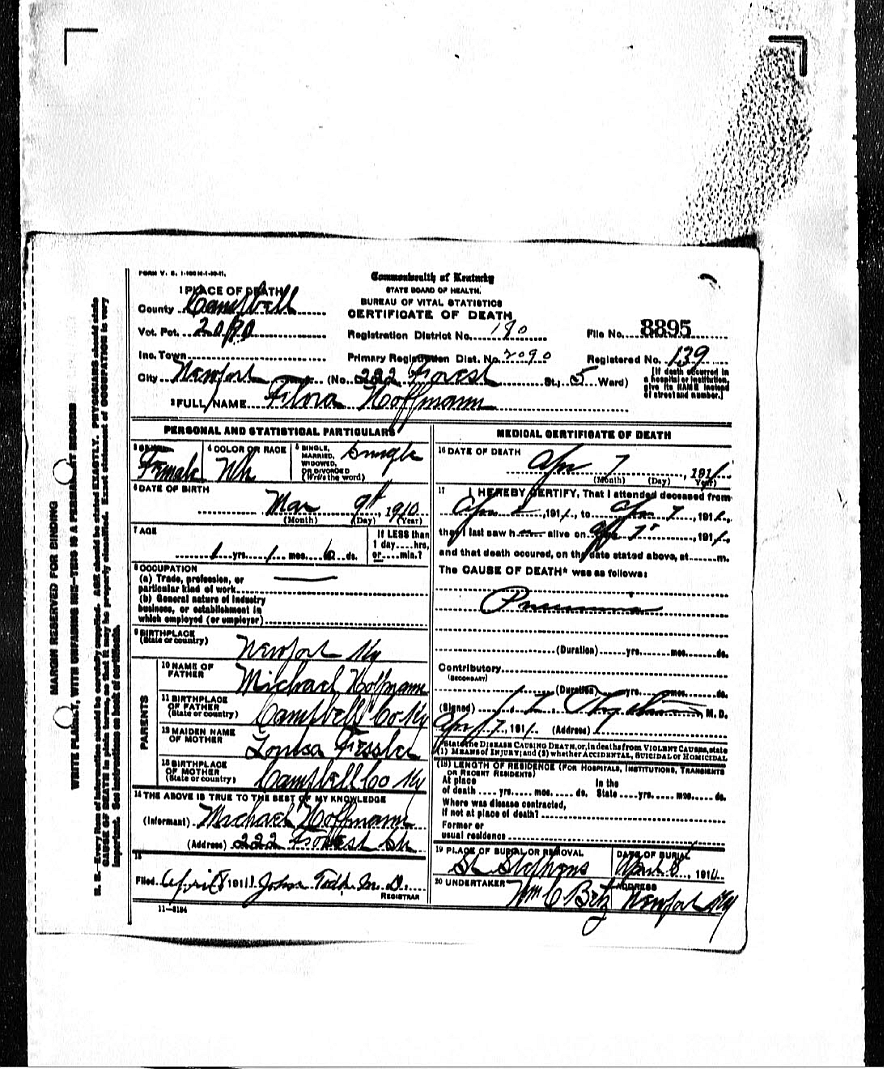 FORM V. S.
Commonwealth of Kentucky
STATE BOARD OF HEALTH.
BUREAU OF VITAL STATISTICS
CERTIFICATE OF DEATH
1 PLACE OF DEATH
County Campbell
Vot. Pct. 2090
Registration District No. 190
File No. 8895
Inc. Town
Primary Registration Dist. No. 2090
Registered No. 139
City Newport (No. 222 Forest St., 5 Ward)
[If death occurred in a hospital or institution, give its NAME instead of street and number.]
2 FULL NAME Flora Hoffmann
PERSONAL AND STATISTICAL PARTICULARS
3 SEX Female
4 COLOR OR RACE Wh
5 SINGLE, MARRIED, WIDOWED, OR DIVORCED (Write the word) Single
6 DATE OF BIRTH
Mar 9th 1910
(Month) (Day) (Year)
7 AGE
1 yrs. 1 mos. ds.
If LESS than 1 day....hrs, or....min.?
8 OCCUPATION
(a) Trade, profession, or particular kind of work
(b) General nature of industry business, or establishment in which employed (or employer)
9 BIRTHPLACE (State or country) Newport Ky
PARENTS
10 NAME OF FATHER Michael Hoffmann
11 BIRTHPLACE OF FATHER (State or country) Campbell Co Ky
12 MAIDEN NAME OF MOTHER Louisa Fessler
13 BIRTHPLACE OF MOTHER (State or country) Campbell Co Ky
14 THE ABOVE IS TRUE TO THE BEST OF MY KNOWLEDGE
(Informant) Michael Hoffmann
(Address) 222 Forest St
15
Filed April 8 1911 John Todd M. D.
REGISTRAR
11-3184
MEDICAL CERTIFICATE OF DEATH
16 DATE OF DEATH
Apr 7, 1911
(Month) (Day) (Year)
17 I HEREBY CERTIFY, That I attended deceased from
Apr , 1911, to Apr 7, 1911,
that I last saw h alive on Apr 7, 1911,
and that death occured, on the date stated above, at m.
The CAUSE OF DEATH* was as follows:
Pneumonia
(Duration) yrs. mos. ds.
Contributory
(SECONDARY)
(Duration) yrs. mos. ds.
(Signed) M. D.
Apr 7, 1911. (Address)
*State the DISEASE CAUSING DEATH, or, in deaths from VIOLENT CAUSES, state (1) MEANS OF INJURY; and (2) whether ACCIDENTAL, SUICIDAL or HOMICIDAL
(18) LENGTH OF RESIDENCE (FOR HOSPITALS, INSTITUTIONS, TRANSIENTS OR RECENT RESIDENTS)
At place of death yrs. mos. ds. In the State yrs. mos. ds.
Where was disease contracted, if not at place of death?
Former or usual residence
19 PLACE OF BURIAL OR REMOVAL St. Stephens
DATE OF BURIAL 8, 1911
20 UNDERTAKER Wm C Betz
ADDRESS Newport Ky
MARGIN RESERVED FOR BINDING
WRITE PLAINLY, WITH UNFADING INK—THIS IS A PERMANENT RECORD
N. B.—Every item of information should be carefully supplied. AGE should be stated EXACTLY. PHYSICIANS should state
CAUSE OF DEATH in plain terms, so that it may be properly classified. Exact statement of OCCUPATION is very
important. See instructions on back of certificate.